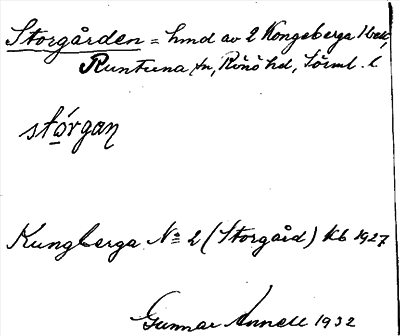 Storgården = hmd av 2 Kongeberga
Runtuna sn, Rönö hd, Söml. l
stórgan
Kungberga No 2 (Storgård) Kb 1927
Gunnar Annell 1932